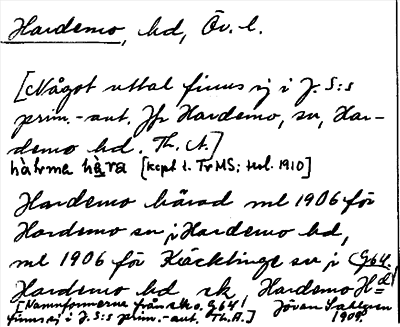 Hardemo, hd, Öv. l.
[Något uttal finns ej i J. S:s
prim.-ant. Jfr Hardemo, sn, Har-
demo hd. Th. A.]
hàrme hära [kopt t. Tr MS; tul. 1910]
Hardemo härad ml 1906 för
Hardemo sn i Hardemo hd,
ml 1906 för Kräcklinge sn i G64.
Hardemo hd sk. Hardemo Hd
[Namnformerna från sk o. G64!
finns ej i J. S:s prim.-ant. Th. A.]
Jöran Sahlgren
1909.